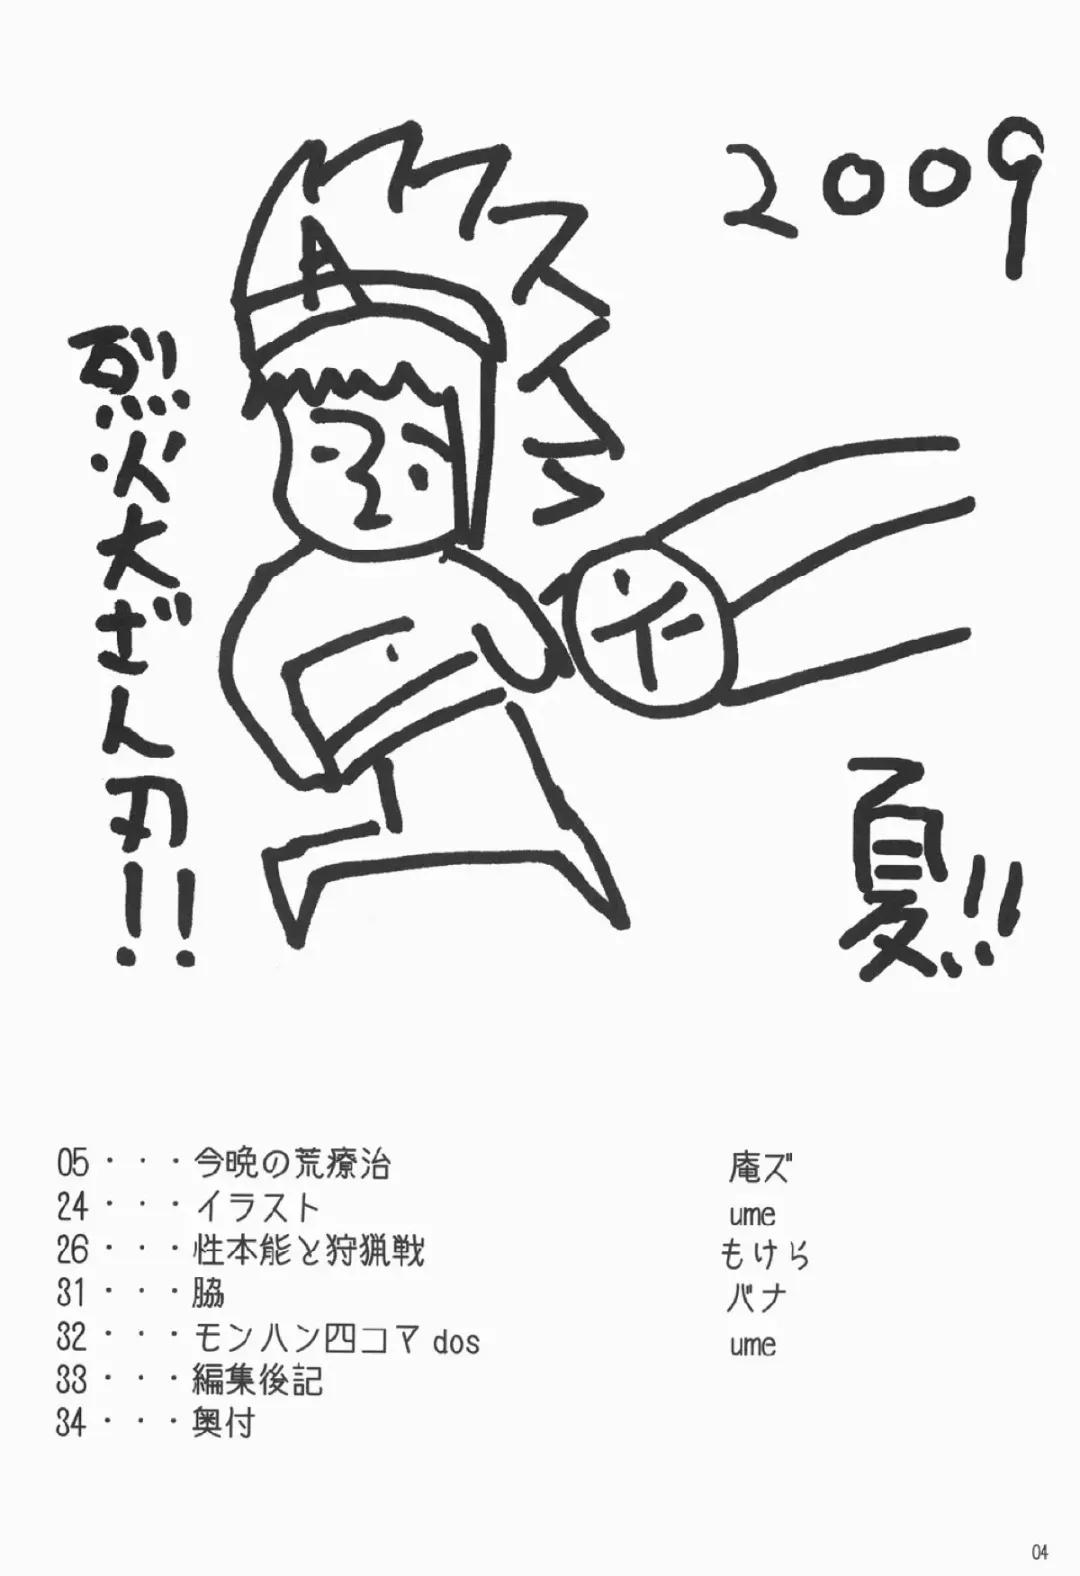 2009
烈火大ざん刃!!
A
ネ
夏!!
05・・・今晩の荒療治 庵ズ
24・・・イラスト ume
26・・・性本能と狩猟戦 もけら
31・・・脇 バナ
32・・・モンハン四コマ dos ume
33・・・編集後記
34・・・奥付
04